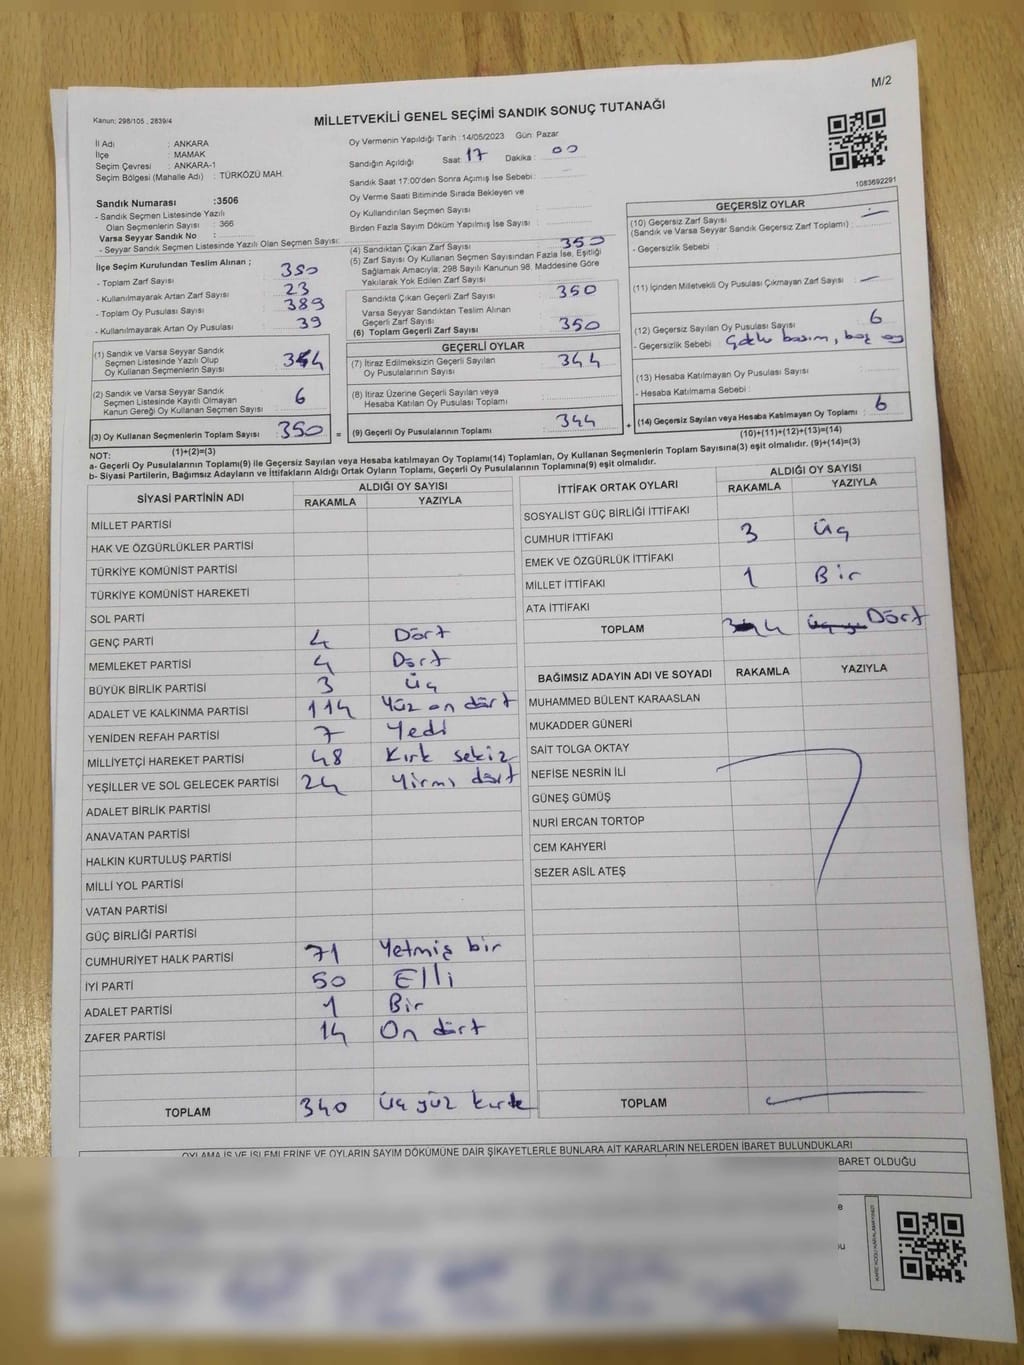 M/2
Kanun; 298/105 , 2839/4
MİLLETVEKİLİ GENEL SEÇİMİ SANDIK SONUÇ TUTANAĞI
İl Adı : ANKARA
İlçe : MAMAK
Seçim Çevresi : ANKARA-1
Seçim Bölgesi (Mahalle Adı) : TÜRKÖZÜ MAH.
Oy Vermenin Yapıldığı Tarih : 14/05/2023 Gün: Pazar
Sandığın Açıldığı Saat : 17 Dakika : 00
Sandık Saat 17:00'den Sonra Açımış İse Sebebi :
Oy Verme Saati Bitiminde Sırada Bekleyen ve
Oy Kullandırılan Seçmen Sayısı :
Birden Fazla Sayım Döküm Yapılmış İse Sayısı :
1083692291
Sandık Numarası :3506
- Sandık Seçmen Listesinde Yazılı
Olan Seçmenlerin Sayısı : 366
Varsa Seyyar Sandık No :
- Seyyar Sandık Seçmen Listesinde Yazılı Olan Seçmen Sayısı:
İlçe Seçim Kurulundan Teslim Alınan ;
- Toplam Zarf Sayısı : 350
- Kullanılmayarak Artan Zarf Sayısı : 23
- Toplam Oy Pusulası Sayısı : 389
- Kullanılmayarak Artan Oy Pusulası : 39
(1) Sandık ve Varsa Seyyar Sandık
Seçmen Listesinde Yazılı Olup
Oy Kullanan Seçmenlerin Sayısı : 344
(2) Sandık ve Varsa Seyyar Sandık
Seçmen Listesinde Kayıtlı Olmayan
Kanun Gereği Oy Kullanan Seçmen Sayısı : 6
(3) Oy Kullanan Seçmenlerin Toplam Sayısı : 350
(1)+(2)=(3)
(4) Sandıktan Çıkan Zarf Sayısı : 350
(5) Zarf Sayısı Oy Kullanan Seçmen Sayısından Fazla İse, Eşitliği
Sağlamak Amacıyla, 298 Sayılı Kanunun 98. Maddesine Göre
Yakılarak Yok Edilen Zarf Sayısı :
Sandıkta Çıkan Geçerli Zarf Sayısı : 350
Varsa Seyyar Sandıktan Teslim Alınan
Geçerli Zarf Sayısı :
(6) Toplam Geçerli Zarf Sayısı : 350
GEÇERLİ OYLAR
(7) İtiraz Edilmeksizin Geçerli Sayılan
Oy Pusulalarının Sayısı : 344
(8) İtiraz Üzerine Geçerli Sayılan veya
Hesaba Katılan Oy Pusulası Toplamı :
= (9) Geçerli Oy Pusulalarının Toplamı : 344
GEÇERSİZ OYLAR
(10) Geçersiz Zarf Sayısı
(Sandık ve Varsa Seyyar Sandık Geçersiz Zarf Toplamı) : -
- Geçersizlik Sebebi :
(11) İçinden Milletvekili Oy Pusulası Çıkmayan Zarf Sayısı : -
(12) Geçersiz Sayılan Oy Pusulası Sayısı : 6
- Geçersizlik Sebebi : Çoklu basım, boş oy
(13) Hesaba Katılmayan Oy Pusulası Sayısı :
- Hesaba Katılmama Sebebi :
+ (14) Geçersiz Sayılan veya Hesaba Katılmayan Oy Toplamı : 6
(10)+(11)+(12)+(13)=(14)
NOT:
a- Geçerli Oy Pusulalarının Toplamı(9) ile Geçersiz Sayılan veya Hesaba katılmayan Oy Toplamı(14) Toplamları, Oy Kullanan Seçmenlerin Toplam Sayısına(3) eşit olmalıdır. (9)+(14)=(3)
b- Siyasi Partilerin, Bağımsız Adayların ve İttifakların Aldığı Ortak Oyların Toplamı, Geçerli Oy Pusulalarının Toplamına(9) eşit olmalıdır.
SİYASİ PARTİNİN ADI ALDIĞI OY SAYISI
RAKAMLA YAZIYLA
MİLLET PARTİSİ
HAK VE ÖZGÜRLÜKLER PARTİSİ
TÜRKİYE KOMÜNİST PARTİSİ
TÜRKİYE KOMÜNİST HAREKETİ
SOL PARTİ
GENÇ PARTİ 4 Dört
MEMLEKET PARTİSİ 4 Dört
BÜYÜK BİRLİK PARTİSİ 3 Üç
ADALET VE KALKINMA PARTİSİ 114 Yüz on dört
YENİDEN REFAH PARTİSİ 7 Yedi
MİLLİYETÇİ HAREKET PARTİSİ 48 Kırk sekiz
YEŞİLLER VE SOL GELECEK PARTİSİ 24 Yirmi dört
ADALET BİRLİK PARTİSİ
ANAVATAN PARTİSİ
HALKIN KURTULUŞ PARTİSİ
MİLLİ YOL PARTİSİ
VATAN PARTİSİ
GÜÇ BİRLİĞİ PARTİSİ
CUMHURİYET HALK PARTİSİ 71 Yetmiş bir
İYİ PARTİ 50 Elli
ADALET PARTİSİ 1 Bir
ZAFER PARTİSİ 14 On dört
TOPLAM 340 Üç yüz kırk
İTTİFAK ORTAK OYLARI ALDIĞI OY SAYISI
RAKAMLA YAZIYLA
SOSYALİST GÜÇ BİRLİĞİ İTTİFAKI
CUMHUR İTTİFAKI 3 Üç
EMEK VE ÖZGÜRLÜK İTTİFAKI
MİLLET İTTİFAKI 1 Bir
ATA İTTİFAKI
TOPLAM 4 Dört
BAĞIMSIZ ADAYIN ADI VE SOYADI RAKAMLA YAZIYLA
MUHAMMED BÜLENT KARAASLAN
MUKADDER GÜNERİ
SAİT TOLGA OKTAY
NEFİSE NESRİN İLİ
GÜNEŞ GÜMÜŞ
NURİ ERCAN TORTOP
CEM KAHYERİ
SEZER ASİL ATEŞ
TOPLAM
OYLAMA İŞ VE İŞLEMLERİNE VE OYLARIN SAYIM DÖKÜMÜNE DAİR ŞİKAYETLERLE BUNLARA AİT KARARLARIN NELERDEN İBARET BULUNDUKLARI
BARET OLDUĞU
KARE KODU KARALAMAYINIZ!